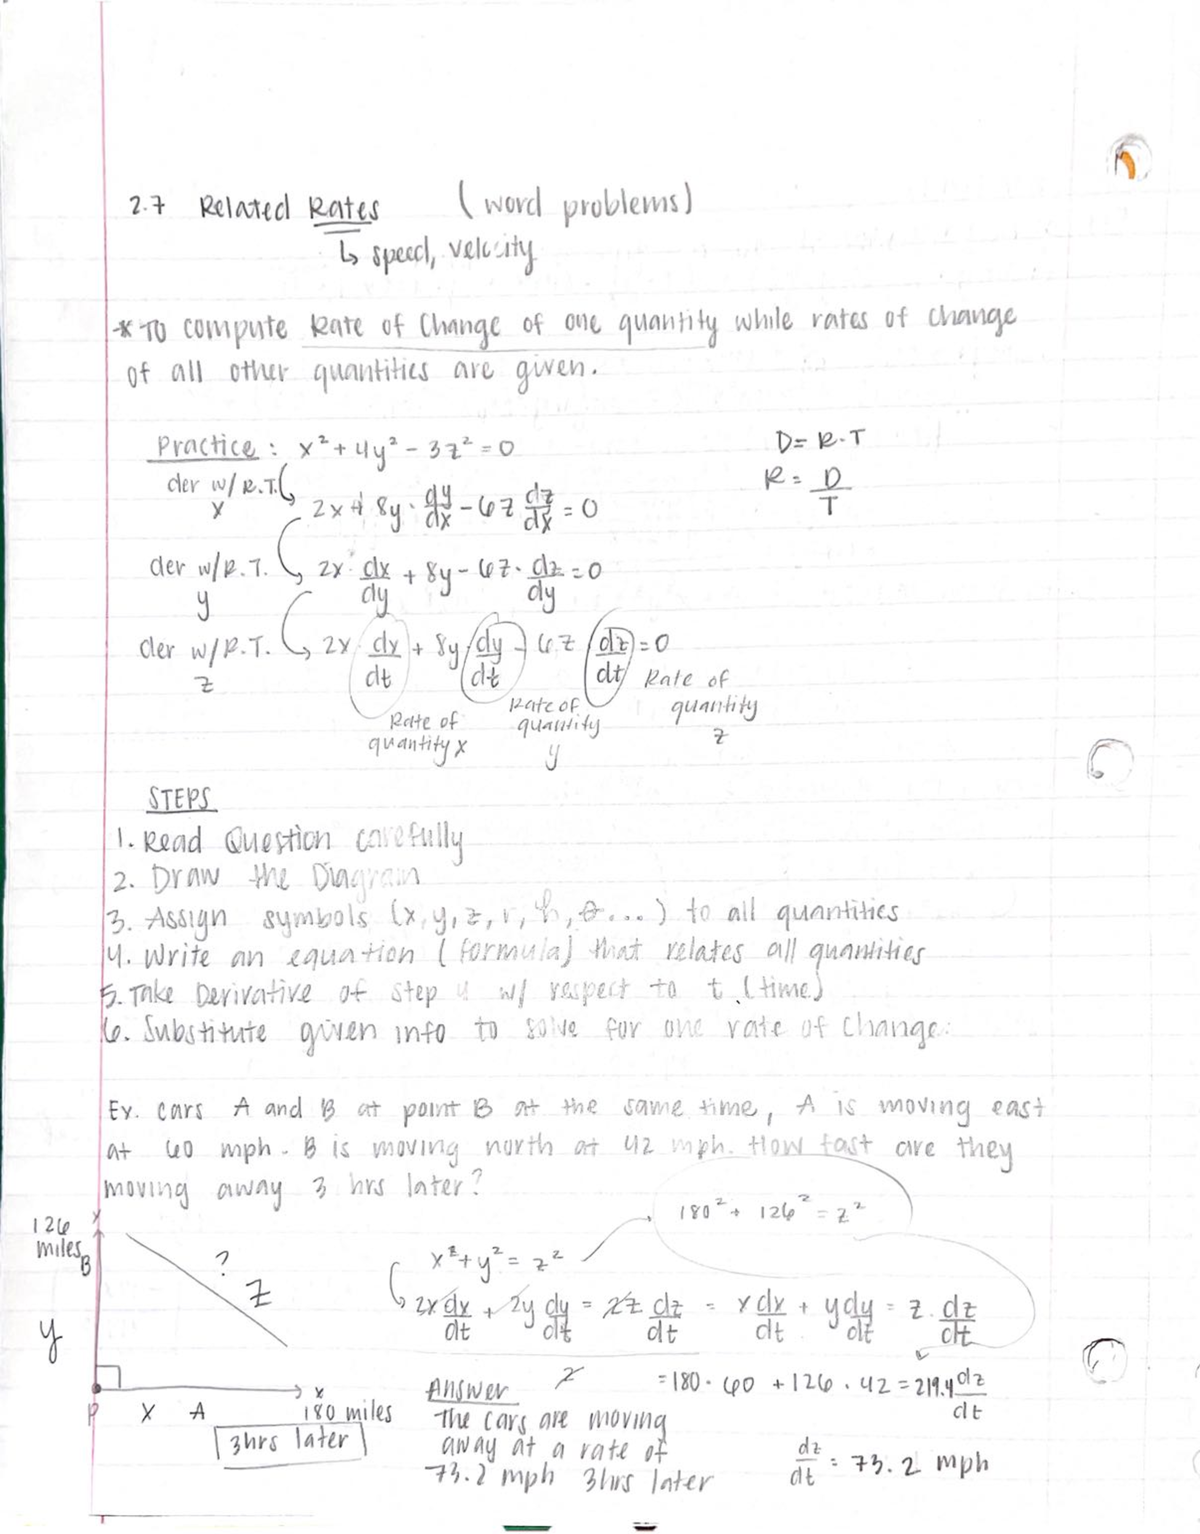 2.7 Related Rates (word problems)
↳ speed, velocity
* To compute Rate of Change of one quantity while rates of change
of all other quantities are given.
Practice: x² + 4y² - 3z² = 0
D = R·T
der w/ R.T. x
2x + 8y · dy/dx - 6z dz/dx = 0
R = D/T
der w/ R.T. y
2x · dx/dy + 8y - 6z · dz/dy = 0
der w/ R.T. z
2x · dx/dt + 8y dy/dt - 6z dz/dt = 0
Rate of quantity x
Rate of quantity y
Rate of quantity z
STEPS
1. Read Question carefully
2. Draw the Diagram
3. Assign symbols (x, y, z, r, h, θ...) to all quantities
4. Write an equation (formula) that relates all quantities
5. Take Derivative of step 4 w/ respect to t (time)
6. Substitute given info to solve for one rate of change.
Ex. cars A and B at point B at the same time, A is moving east
at 60 mph. B is moving north at 42 mph. How fast are they
moving away 3 hrs later?
180² + 126² = z²
126 miles
B
y
?
z
x² + y² = z²
2x dx/dt + 2y dy/dt = 2z dz/dt = x dx/dt + y dy/dt = z · dz/dt
2
= 180 · 60 + 126 · 42 = 219.4 dz/dt
P x A
x
180 miles
3hrs later
Answer
The cars are moving
away at a rate of
73.2 mph 3hrs later
dz/dt = 73.2 mph